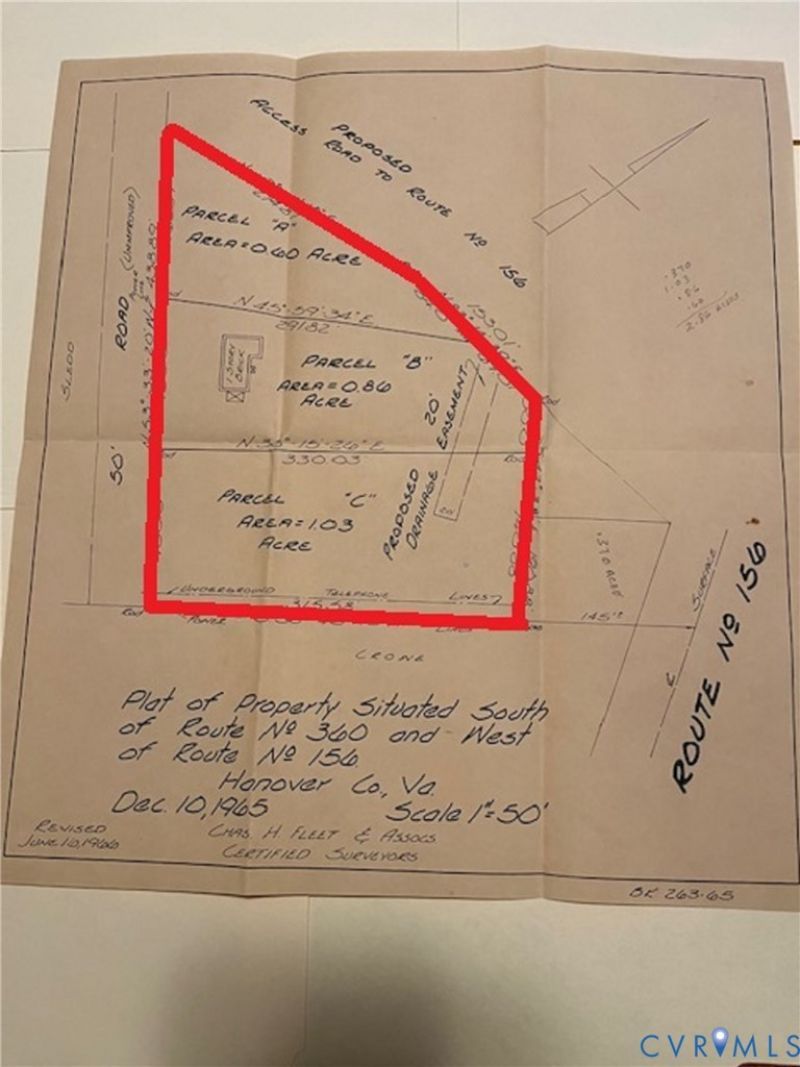 PROPOSED
ACCESS ROAD TO ROUTE Nº 156
PARCEL "A"
AREA=0.60 ACRE
ROAD (UNIMPROVED)
POWER
LINE
50'
SLEDD
N 45°-59'-34" E
291.82'
153.01'
1 STORY
BRICK
PARCEL "B"
AREA=0.86
ACRE
20'
PROPOSED
DRAINAGE EASEMENT
N-38°-15'-26" E
330.03'
Rod
PARCEL "C"
AREA=1.03
ACRE
UNDERGROUND TELEPHONE LINES
315.58
Rod
POWER LINES
CRONE
.370
1.03
.86
.60
2.86 ACRES
.370 ACRE
145'±
SURFACE
ROUTE Nº 156
Plat of Property Situated South
of Route Nº 360 and West
of Route Nº 156
Hanover Co., Va.
Dec. 10, 1965 Scale 1"=50'
REVISED
JUNE 10, 1966
CHAS. H. FLEET & ASSOCS
CERTIFIED SURVEYORS
BK 263-65
CVRMLS